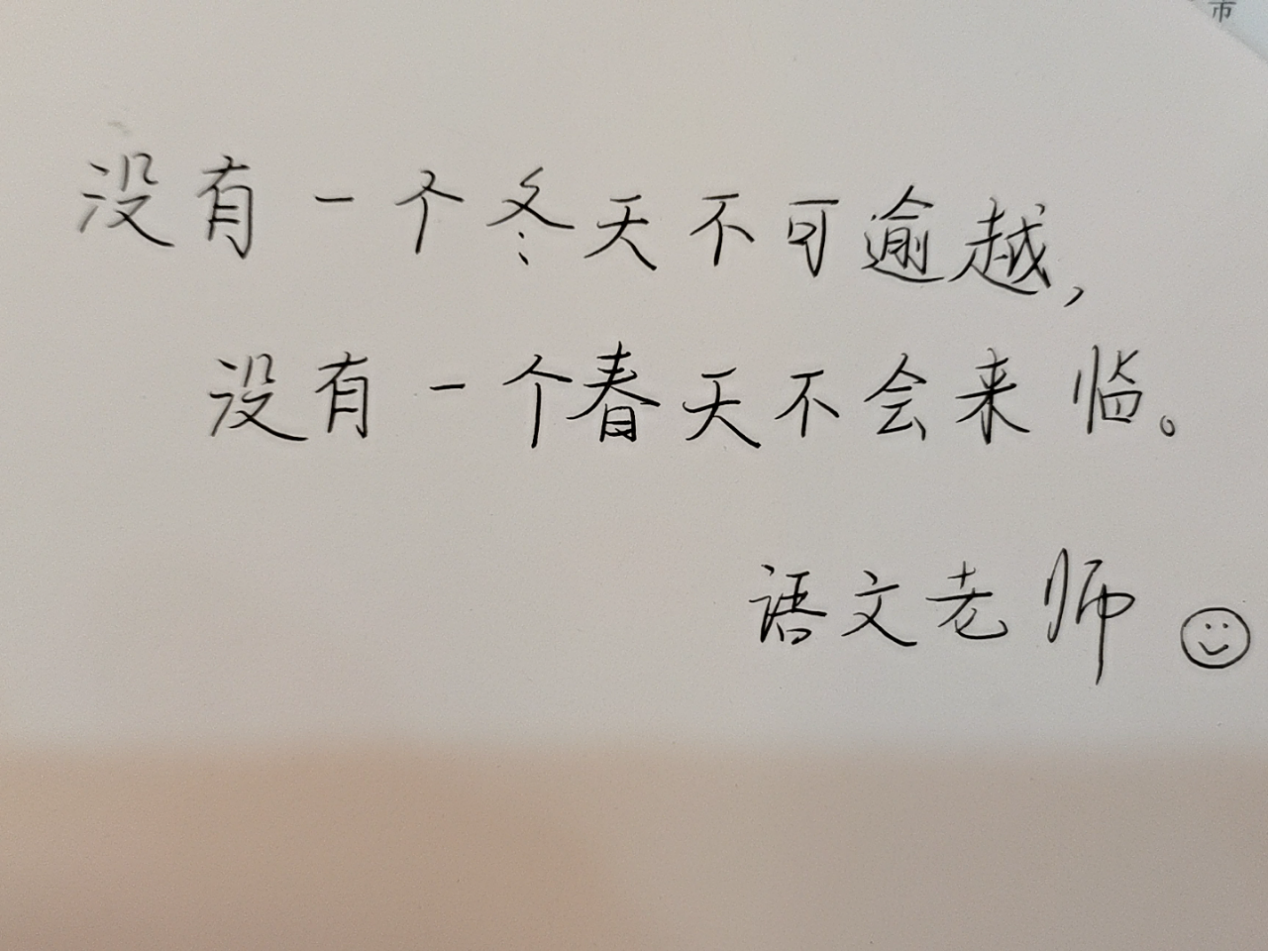 市
没有一个冬天不可逾越，
没有一个春天不会来临。
语文老师